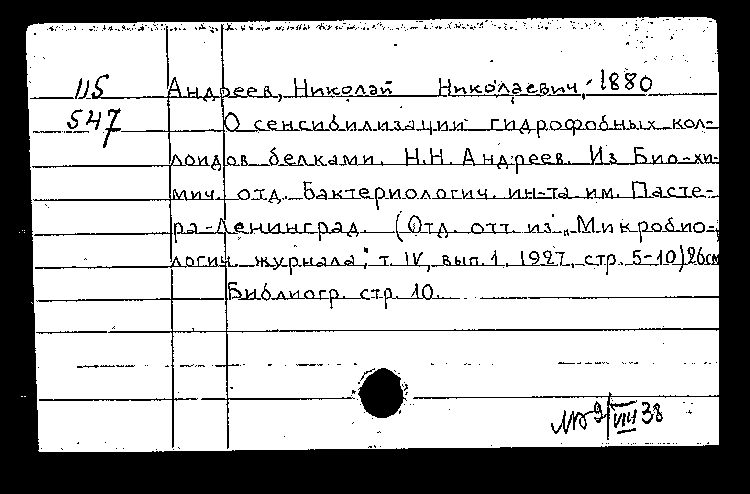 115 Андреев, Николай Николаевич, 1880
547 О сенсибилизации гидрофобных кол-
лоидов белками. Н.Н. Андреев. Из Био-хи-
мич. отд. бактериологич. ин-та им. Пасте-
ра-Ленинград. (Отд. отт. из „Микробио-
логич. журнала", т. IV, вып. 1, 1927, стр. 5-10) 26см
Библиогр. стр. 10.
9/VIII 38